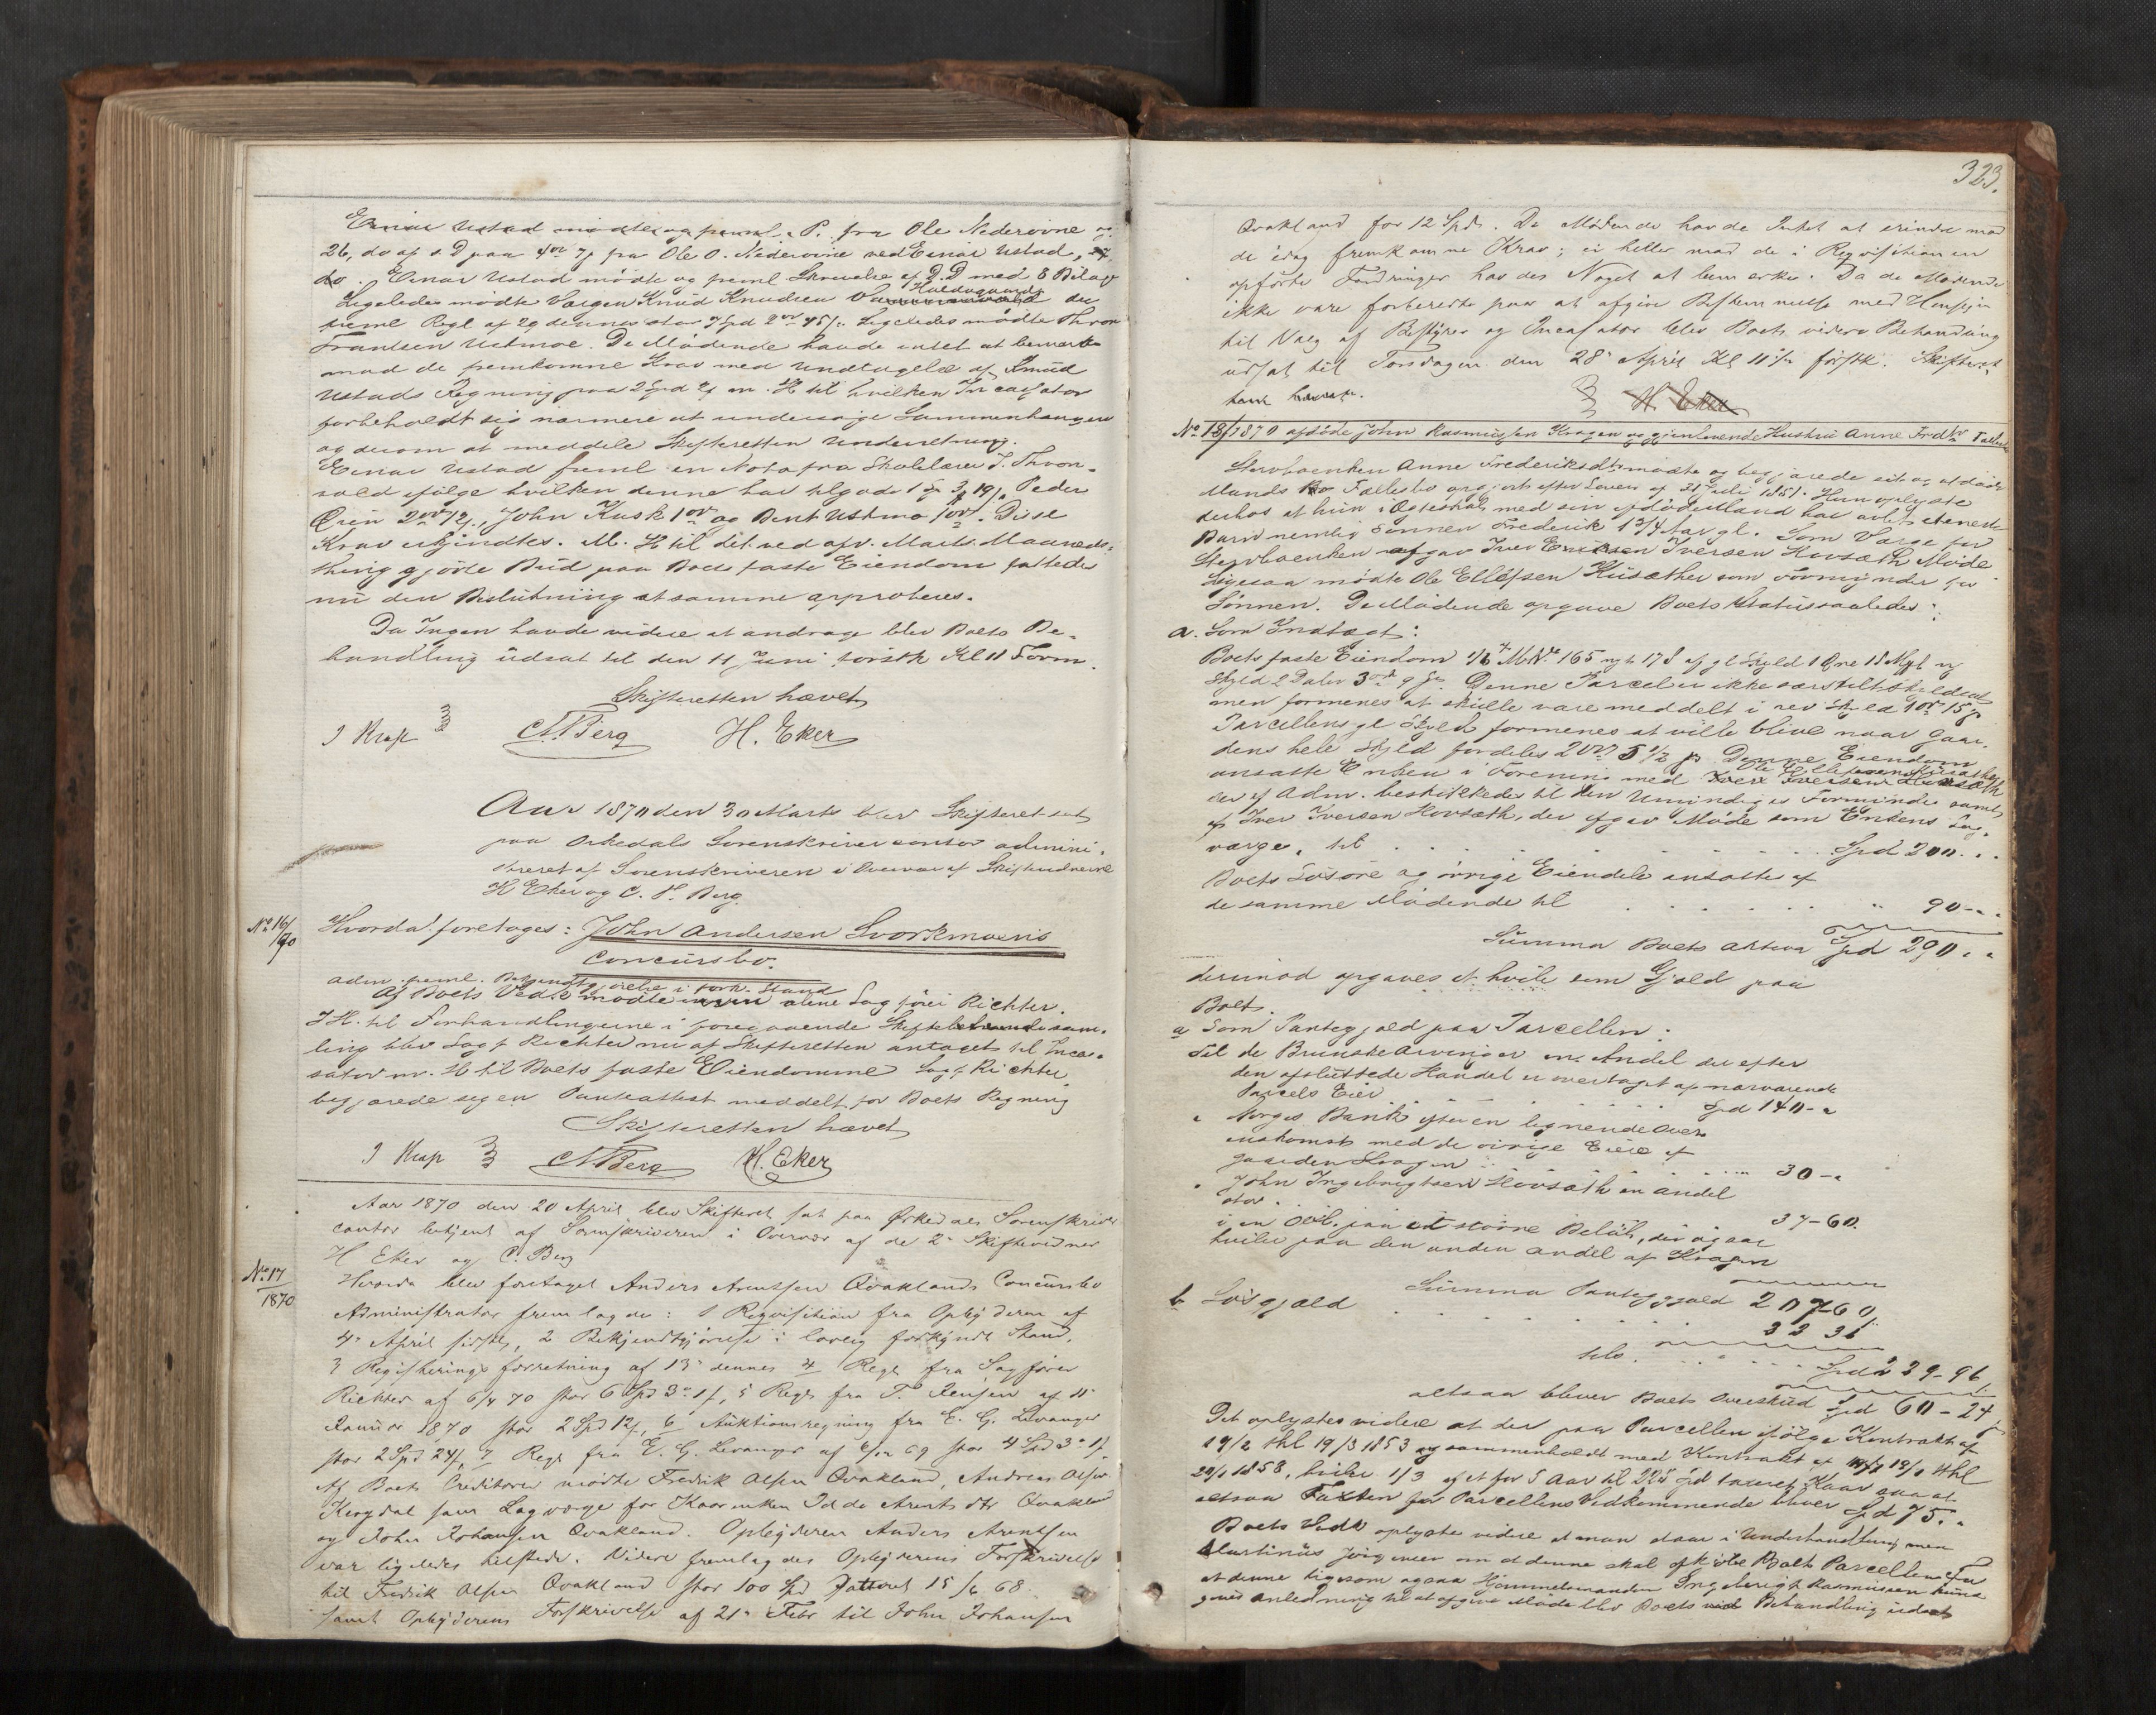 Einar Ustad mødte og freml. P. fra Ole Nedervine og
26, do af s. D paa 4 ort 7 s fra Ole O. Nedervine ved Einar Ustad, 27,
do. Einar Ustad mødte og freml Skrivelse af D.D med 8 Bilag
Ligeledes mødte Værgen Knud Knudsen der
freml Regl af 29 dennes stor 7 Spd 2 ort 45/. Ligeledes mødte Thron
Frantsen Ustmoe. De Mødende havde intet at bemærke
mod de fremkomne Krav med Undtagelse af Knud
Ustads Regning paa 2 Spd m. H til hvilken Incassator
forbeholdt sig nærmere at undersøge Sammenhængen
og derom at meddele Skifteretten Underretning.
Einar Ustad freml en Nota fra Skolelærer J. Thron-
vold ifølge hvilken denne har tilgode 1 19/. Peder
Øien 2 ort 12/., John Kusk 1 ort og Bent Ustmo 1 ort. Disse
Krav erkjendtes. M. H til det ved afv. Marts Maaneds-
thing gjorte Bud paa Boets faste Eiendom fattedes
nu den Beslutning at samme approberes.
Da Ingen havde videre at andrage blev Boets Be-
handling udsat til den 11 Juni førstk Kl 11 Form.
Skifteretten hævet
J Krap C. Berg H. Eker
Aar 1870 den 30 Marts blev Skifteret sat
paa Orkedals Sorenskrivercontor admini-
streret af Sorenskriveren i Overvær af Skiftevidnerne
H Eker og C. Berg.
No 16/70
Hvorda foretoges: John Andersen Svorkmoens
Concursbo.
Adm. freml. Bekjendtgjørelse i fork. Stand
Af Boets Vedk mødte alene Sagfører Richter.
I H. til Forhandlingerne i foregaaende Skiftesam-
ling blev Sagf Richter nu af Skifteretten antaget til Inca-
sator m. H til Boets faste Eiendomme Sagf. Richter
begjærede sig en Panteattest meddelt for Boets Regning
Skifteretten hævet
J Krap C. Berg H. Eker
Aar 1870 den 20 April blev Skifteret sat paa Orkedals Sorenskriver
contor betjent af Sorenskriveren i Overvær af de 2de Skiftevidner
H Eker og C. Berg
No 17/1870
Hvorda blev foretaget Anders Arentsen Qvaklands Concursbo
Administrator fremlagde: 1 Reqvisition fra Opbyderen af
4de April sidstl, 2 Bekjendtgjørelse i lovlig forkyndt Stand,
3 Registreringsforretning af 13de dennes 4 Regl fra Sagfører
Richter af 6/4 70 stor 6 Spd 3 ort 1 s, 5 Regl fra T. Jensen af 11te
Januar 1870 stor 2 Spd 12 s, 6 Auktionsregning fra E. G. Levanger
stor 2 Spd 24 s, 7 Regl fra E. G. Levanger af 69 stor 4 Spd 3 ort 1 s.
Af Boets Creditorer mødte Fredrik Olsen Qvakland, Andreas Olsen
som Lagværge for Kaarenken Arentsdtr Qvakland
og John Johansen Qvakland. Opbyderen Anders Arentsen
var ligeledes tilstede. Videre fremlagdes Opbyderens Forskrivelse
til Fredrik Olsen Qvakland stor 100 Spd dateret 15/6 68
samt Opbyderens Forskrivelse af 21de Febr til John Johansen
323.
Qvakland for 12 Spd. De Mødende havde Intet at erindre mod
de idag fremkomne Krav; ei heller mod de i Reqvisitionen
opførte Fordringer havdes Noget at bemærke. Da de Mødende
ikke vare forberedte paa at afgive Bestemmelse med Hensyn
til Valg af Bestyrer og Incasator blev Boets videre Behandling
udsat til Torsdagen den 28de April Kl 11 fm førstk. Skifteret
ten hævet. H. Eker
No 18/1870 afdøde John Rasmussen Kragen og gjenlevende Hustru Anne Frdr Fællesbo
Stervboenken Anne Frederiksdtr mødte og begjærede sit og afdøde
Mands Fællesbo opgjort efter Loven af 31 Juli 1851. Hun oplyste
derhos at hun i Ægteskab med sin afdøde Mand har avlet et eneste
Barn nemlig Sønnen Frederik 1 3/4 Aar gl. Som Værge for
Stervboenken afgav Iver Iversen Hovsæth Møde
Ligesaa mødte Ole Ellefsen Husæther som Formynder for
Sønnen. De Mødende opgave Boets Status saaledes:
a. Som Indtægt:
Boets faste Eiendom 1/6 M.No 165 nyt 178 af gl Skyld 1 Øre 18 Mkl ny
Skyld 2 Daler 3 ort 9 s. Denne Parcel er ikke særskilt skyldsat
men formenes at skulle være meddelt i ny Skyld 1 ort 15 s
Parcellens gl Skyld formenes at ville blive naar Gaar-
dens hele Skyld fordeles 2 ort 5 1/2 s Denne Eiendom
ansatte Enken i Forening med Ole Ellefsen Husæther
der af Adm. beskikkedes til den Umyndiges Formynder samt
af Iver Iversen Hovsæth, der afgav Møde som Enkens Lag-
værge, til . . . . . . Spd 200. "
Boets Løsøre og øvrige Eiendele ansattes af
de samme Mødende til . . . . . " 90 - "
Summa Boets Aktiva Spd 290. "
derimod opgaves at hvile som Gjæld paa
Boet.
a Som Pantegjæld paa Parcellen:
Til de Brunske Arvinger en Andel der efter
den afsluttede Handel er overtaget af nærværende
Parcels Eier . . . . . Spd 140 - "
" Norges Bank efter en lignende Over-
enskomst med de øvrige Eiere af
Gaarden Kragen . . . . . 30 - "
" John Ingebrigtsen Hovsæth en Andel
stor . 37-60.
i en Obl. paa et større Beløb, der ogsaa
hviler paa den anden Andel af Kragen
Summa Pantegjæld 207-60.
b Løsgjæld . . . . . 32 36
tils. . . . . Spd 239-96
altsaa bliver Boets Overskud Spd 60-24
Det oplystes videre at der paa Parcellen ifølge Kontrakt af
19/2 thl 19/3 1853 og sammenholdt med Kontrakt af 18/1 thl
20/1 1858, hviler 1/3 af et for 5 Aar til 225 Spd taxeret Kaar saa at
altsaa Taxten for Parcellens Vedkommende bliver Spd 75. "
Boets Vedk oplyste videre at man staar i Underhandling med
Martinus Jørgensen om at denne skal afkjøbe Boet Parcellen. For
at denne ligesom ogsaa Hjemmelsmanden Ingebrigt Rasmussen kunde
gives Anledning til at afgive Møde blev Boets Behandling udsat